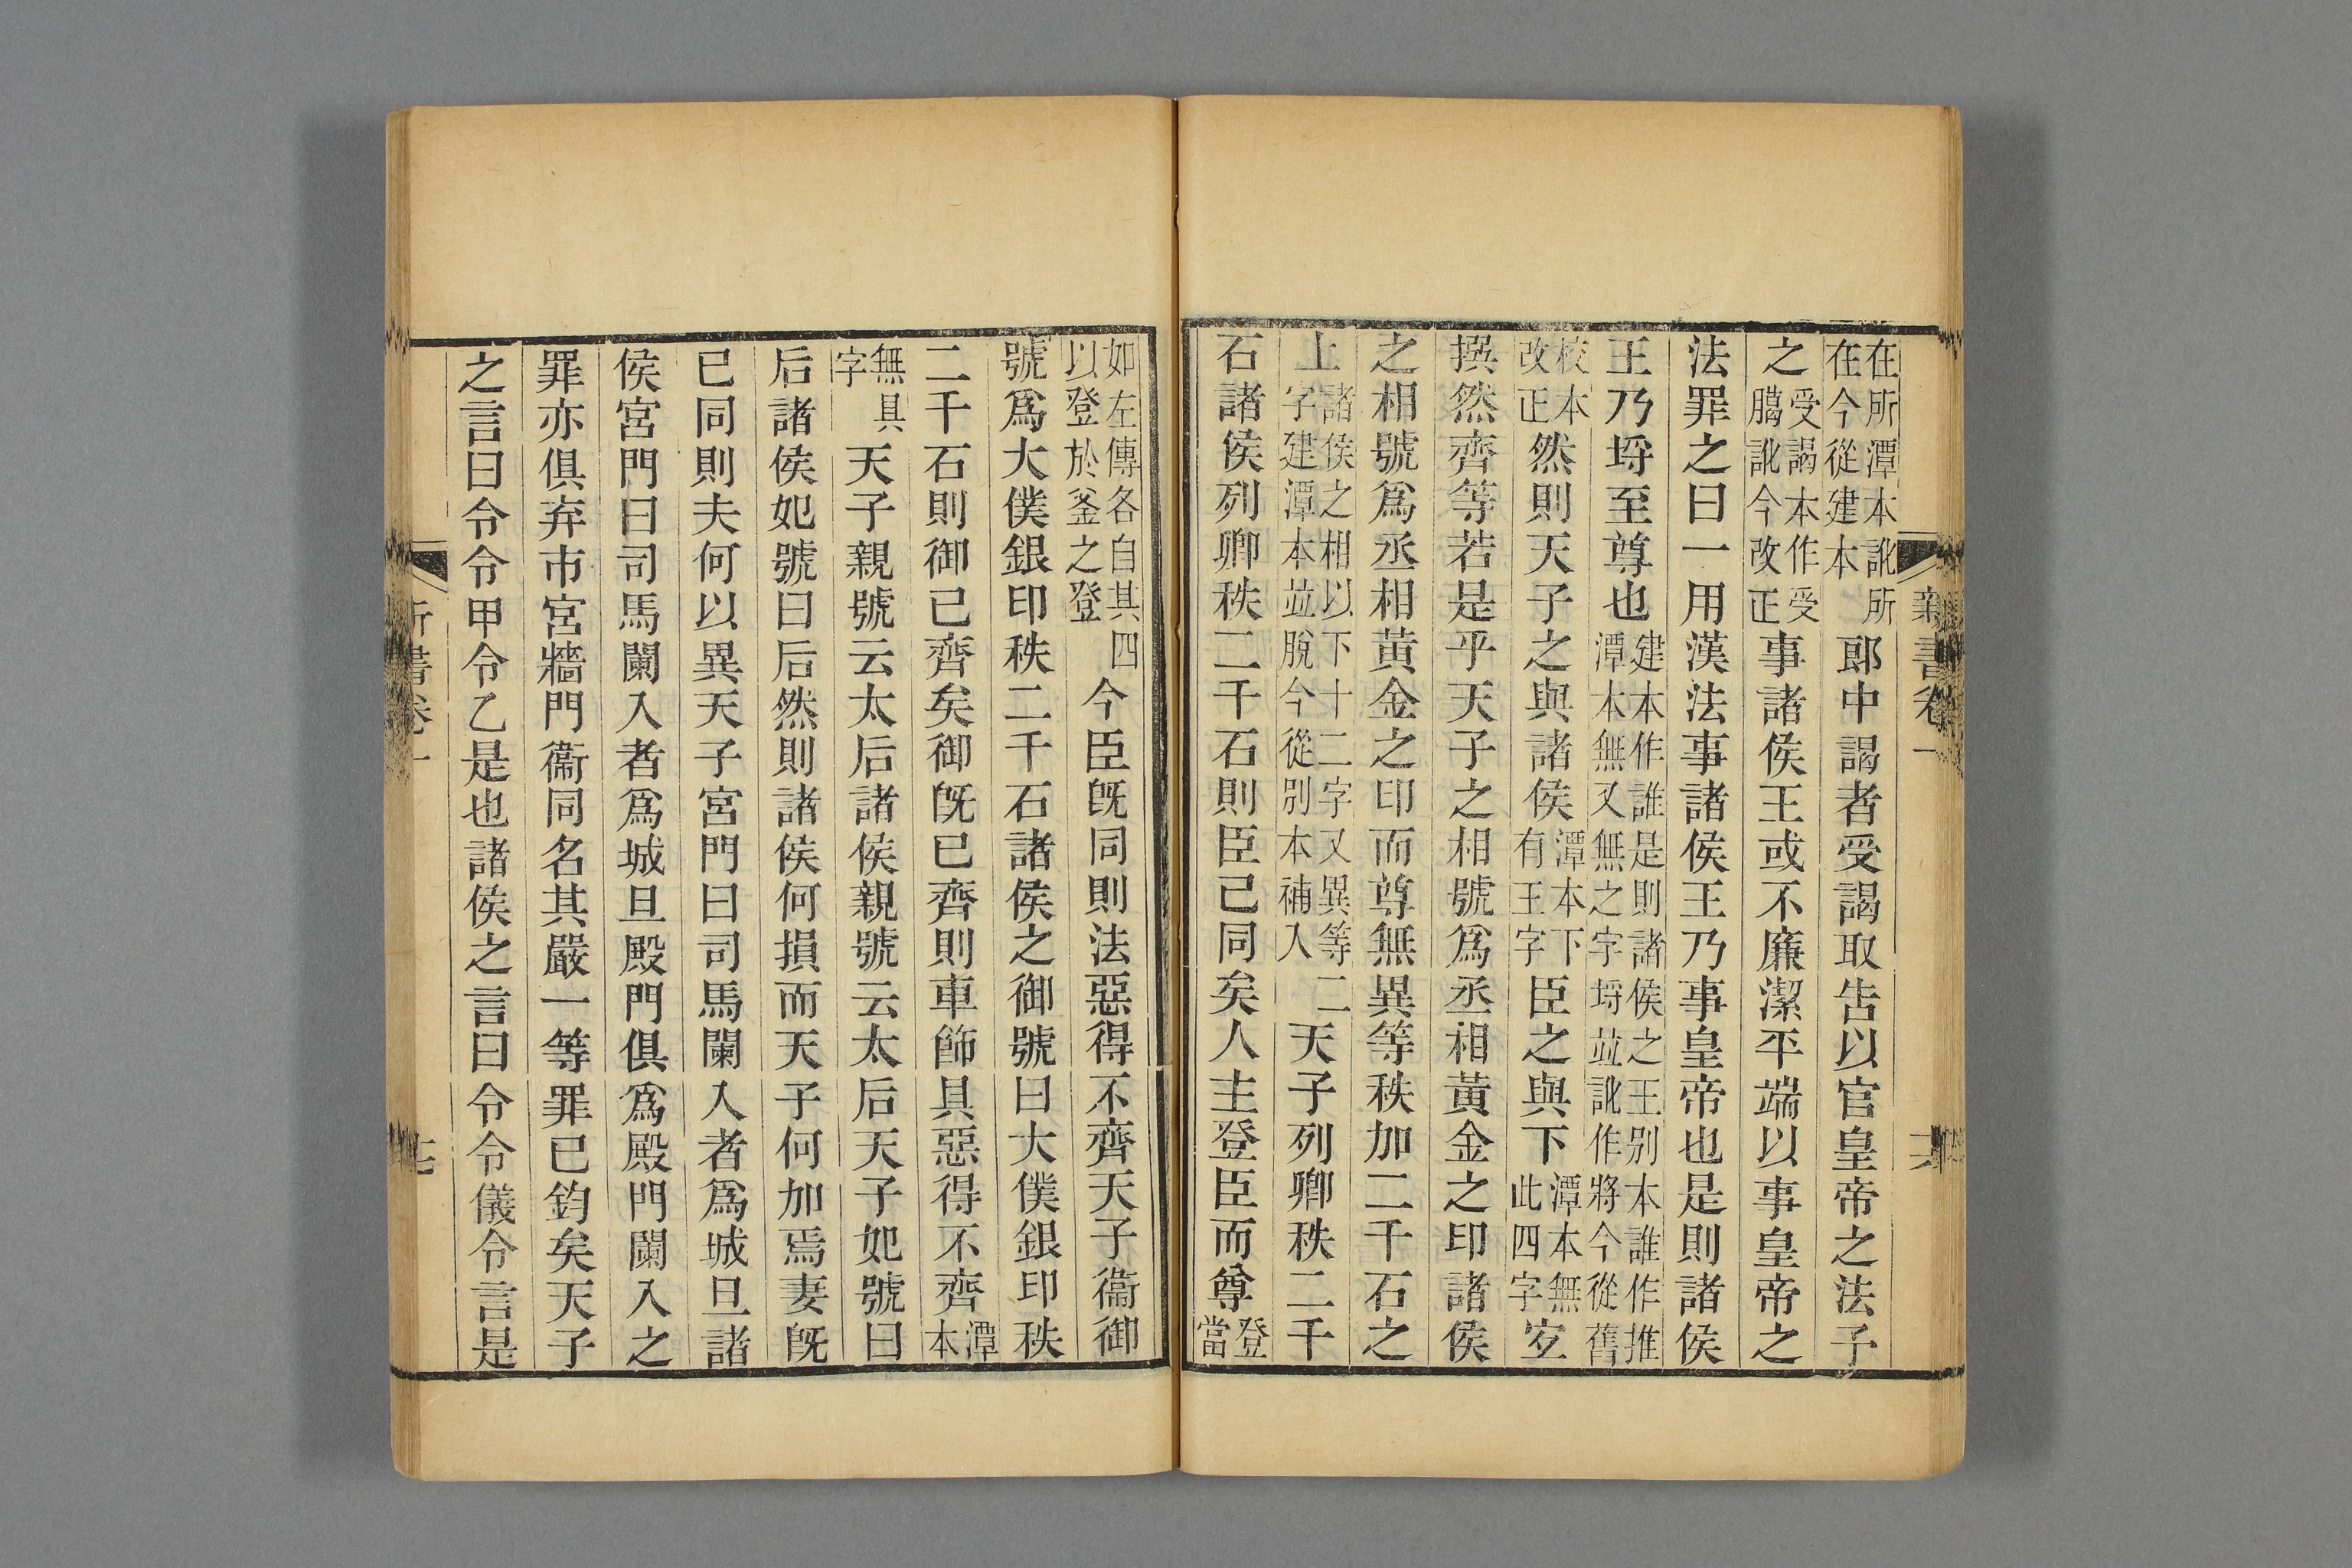 新書卷一　十六
在所潭本訛所在今從建本郎中謁者受謁取告以官皇帝之法予
之受謁本作受臈訛今改正事諸侯王或不廉潔平端以事皇帝之
法罪之曰一用漢法事諸侯王乃事皇帝也是則諸侯
王乃埒至尊也建本作誰是則諸侯之王别本誰作推潭本無又無之字埒並訛作將今從舊
校本改正然則天子之與諸侯潭本下有王字臣之與下潭本無此四字宐
撰然齊等若是乎天子之相號爲丞相黃金之印諸侯
之相號爲丞相黃金之印而尊無異等秩加二千石之
上諸侯之相以下十二字又異等二字建潭本並脫今從别本補入天子列卿秩二千
石諸侯列卿秩二千石則臣已同矣人主登臣而尊登當
如左傳各自其四以登於釜之登今臣旣同則法惡得不齊天子衞御
號爲大僕銀印秩二千石諸侯之御號曰大僕銀印秩
二千石則御已齊矣御旣已齊則車飾具惡得不齊潭本
無具字天子親號云太后諸侯親號云太后天子妃號曰
后諸侯妃號曰后然則諸侯何損而天子何加焉妻旣
已同則夫何以異天子宮門曰司馬闌入者爲城旦諸
侯宮門曰司馬闌入者爲城旦殿門俱爲殿門闌入之
罪亦俱弃市宮牆門衞同名其嚴一等罪已鈞矣天子
之言曰令令甲令乙是也諸侯之言曰令令儀令言是
新書卷一　十七